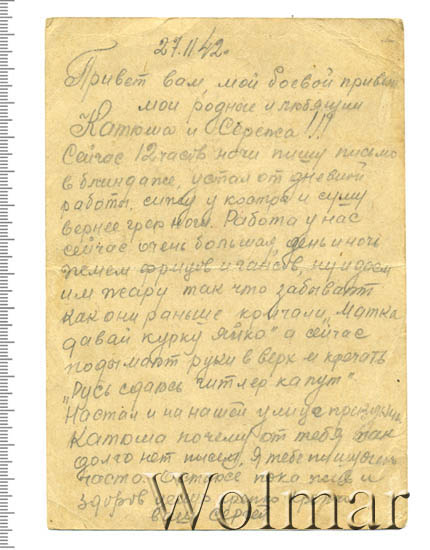 27.11.42.
Привет вам, мой боевой привет
мои родные и любящии
Катюша и Сережа!!!
Сейчас 12 часов ночи пишу письмо
в блиндаже, устал от дневной
работы, сижу у костра и сушу,
вернее грею ноги. Работа у нас
сейчас очень большая, день и ночь
жмем фрицов и гансов, ну и даем
им жару так что забывают
как они раньше кричали, матка
давай курку яйко" а сейчас
подымают руки в верх и кричать
„Русь сдаюсь гитлер капут"
Настал и на нашой улице праздник.
Катюша почему от тебя так
долго нет писем, я тебе пишу очень
часто. пока жив и
здоров
ваш Сергей
Wolmar